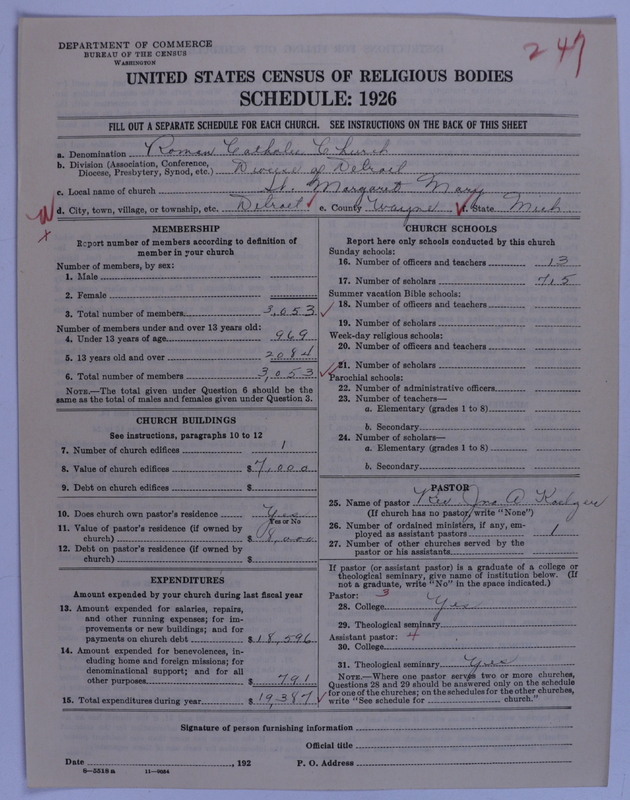 DEPARTMENT OF COMMERCE
BUREAU OF THE CENSUS
WASHINGTON
247
UNITED STATES CENSUS OF RELIGIOUS BODIES
SCHEDULE: 1926
FILL OUT A SEPARATE SCHEDULE FOR EACH CHURCH. SEE INSTRUCTIONS ON THE BACK OF THIS SHEET
a. Denomination Roman Catholic Church
b. Division (Association, Conference, Diocese, Presbytery, Synod, etc.) Diocese of Detroit
c. Local name of church St. Margaret Mary
d. City, town, village, or township, etc. Detroit e. County Wayne f. State Mich
MEMBERSHIP
Report number of members according to definition of
member in your church
Number of members, by sex:
1. Male
2. Female
3. Total number of members 3,053
Number of members under and over 13 years old:
4. Under 13 years of age 969
5. 13 years old and over 2084
6. Total number of members 3,053
NOTE.—The total given under Question 6 should be
same as the total of males and females given under Question 3.
CHURCH BUILDINGS
See instructions, paragraphs 10 to 12
7. Number of church edifices 1
8. Value of church edifices $7,000
9. Debt on church edifices $
10. Does church own pastor's residence Yes
Yes or No
11. Value of pastor's residence (if owned by
church) $8,000
12. Debt on pastor's residence (if owned by
church) $
EXPENDITURES
Amount expended by your church during last fiscal year
13. Amount expended for salaries, repairs,
and other running expenses; for im-
provements or new buildings; and for
payments on church debt $18,596
14. Amount expended for benevolences, in-
cluding home and foreign missions; for
denominational support; and for all
other purposes $791
15. Total expenditures during year $19,387
CHURCH SCHOOLS
Report here only schools conducted by this church
Sunday schools:
16. Number of officers and teachers 13
17. Number of scholars 715
Summer vacation Bible schools:
18. Number of officers and teachers
19. Number of scholars
Week-day religious schools:
20. Number of officers and teachers
21. Number of scholars
Parochial schools:
22. Number of administrative officers
23. Number of teachers—
a. Elementary (grades 1 to 8)
b. Secondary
24. Number of scholars—
a. Elementary (grades 1 to 8)
b. Secondary
PASTOR
25. Name of pastor Rev. Jno. A.
(If church has no pastor, write "None")
26. Number of ordained ministers, if any, em-
ployed as assistant pastors 1
27. Number of other churches served by the
pastor or his assistants
If pastor (or assistant pastor) is a graduate of a college or
theological seminary, give name of institution below. (If
not a graduate, write "No" in the space indicated.)
Pastor: 3
28. College Yes
29. Theological seminary
Assistant pastor: 4
30. College
31. Theological seminary Yes
NOTE.—Where one pastor serves two or more churches,
Questions 28 and 29 should be answered only on the schedule
for one of the churches; on the schedules for the other churches,
write "See schedule for church."
Signature of person furnishing information
Official title
Date , 192 P. O. Address
6—5518a 11—9084